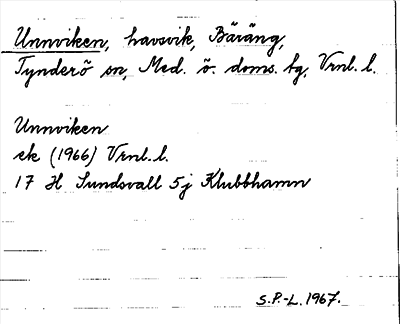 Unnviken, havsvik, Bäräng,
Tynderö sn, Med. ö. doms. tg, Vrnl. l.
Unnviken
ek (1966) Vrnl. l.
17 H Sundsvall 5j Klubbhamn
S.P.-L. 1967.